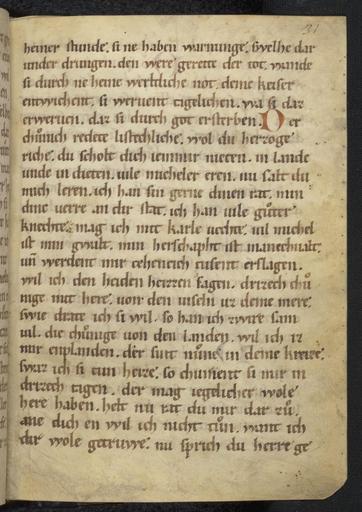 31
heiner stunde. si ne haben warnunge. Swelhe dar
under drungen. den were gerette der tot. wande
si durch ne heine werltliche not. deme keiser
entwichent. si weruent tagelichen. wa si daz
erweruen. daz si durch got ersterben. Der
chůnich redete listechliche. wol du herzoge
riche. du scholt dich iemmir nieten. in lande
unde in dieten. uile micheler eren. nu salt du
mich leren. ich han sin gerne dinen rat. min
dinc uerre an dir stat. ich han uile gůter
knechte. mag ich mit karle uechte. uil michel
ist min gewalt. min herschapht ist manechualt.
uñ werdent mir ceheneich tusent erslagen.
wil ich den heiden herren sagen. drizech chů
nige mit here. uon den inseln uz deme mere.
swie drate ich si wil. so han ich zwire sam
uil. die chůnige uon den landen. wil ich ir
mir enplanden. der surt nůne in deme kreize.
swaz ich si tůn heize. so chument si mir in
drizech tagen. der mag iegelicher wole
here haben. helt nu rat du mir dar zů.
ane dich en wil ich nicht tůn. want ich
dir wole getruwe. nu sprich du herre ge